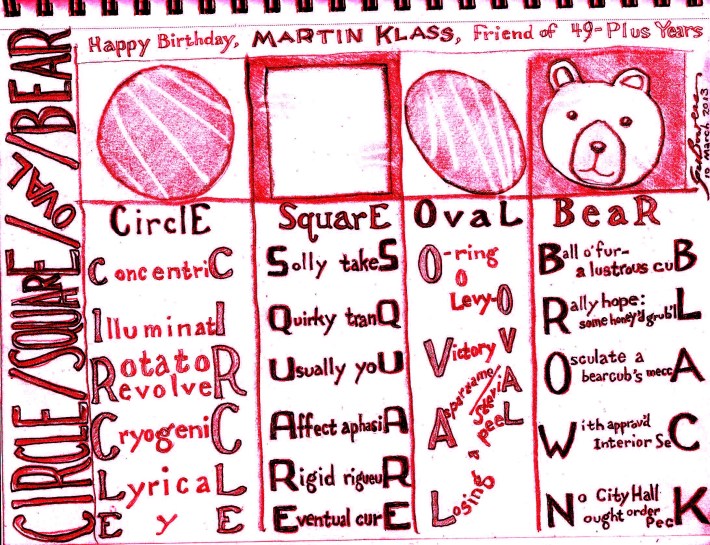 Happy Birthday, MARTIN KLASS, Friend of 49-Plus Years
CIRCLE/SQUARE/OVAL/BEAR
10 March 2013
CirclE
ConcentriC
IlluminatI
RotatoR
RevolveR
CryogeniC
LyricaL
E y E
SquarE
Solly takeS
Quirky tranQ
Usually yoU
Affect aphasiA
Rigid rigueuR
Eventual curE
OvaL
O-ring
O
Levy-O
Victory V
A
Losing a peeL
BeaR
Ball o'fur-
a lustrous cuB
Rally hope:
some honey'd grub'lL
Osculate a
bearcub's meccA
With approv'd
Interior SeC
No City Hall
ought order
PecK